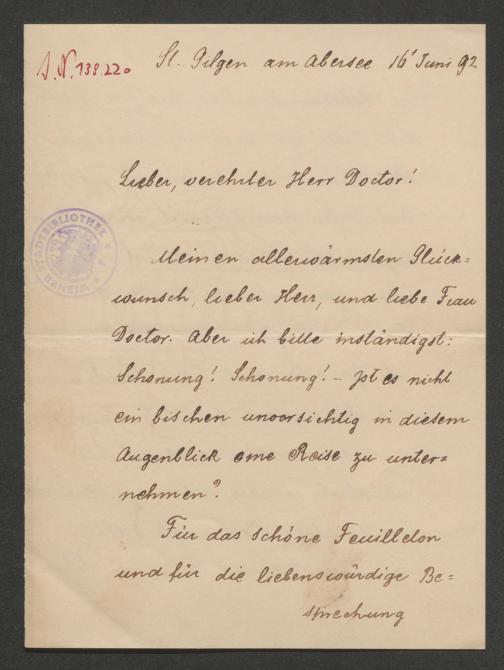 J. N. 138.220
St. Gilgen am Abersee 16' Juni 92
Lieber, verehrter Herr Doctor!
WIENER STADTBIBLIOTHEK
Meinen allerwärmsten Glück=
wunsch, lieber Herr, und liebe Frau
Doctor. Aber ich bitte inständigst:
Schonung! Schonung! – Ist es nicht
ein bischen unvorsichtig in diesem
Augenblick eine Reise zu unter=
nehmen?
Für das schöne Feuilleton
und für die liebenswürdige Be=
sprechung